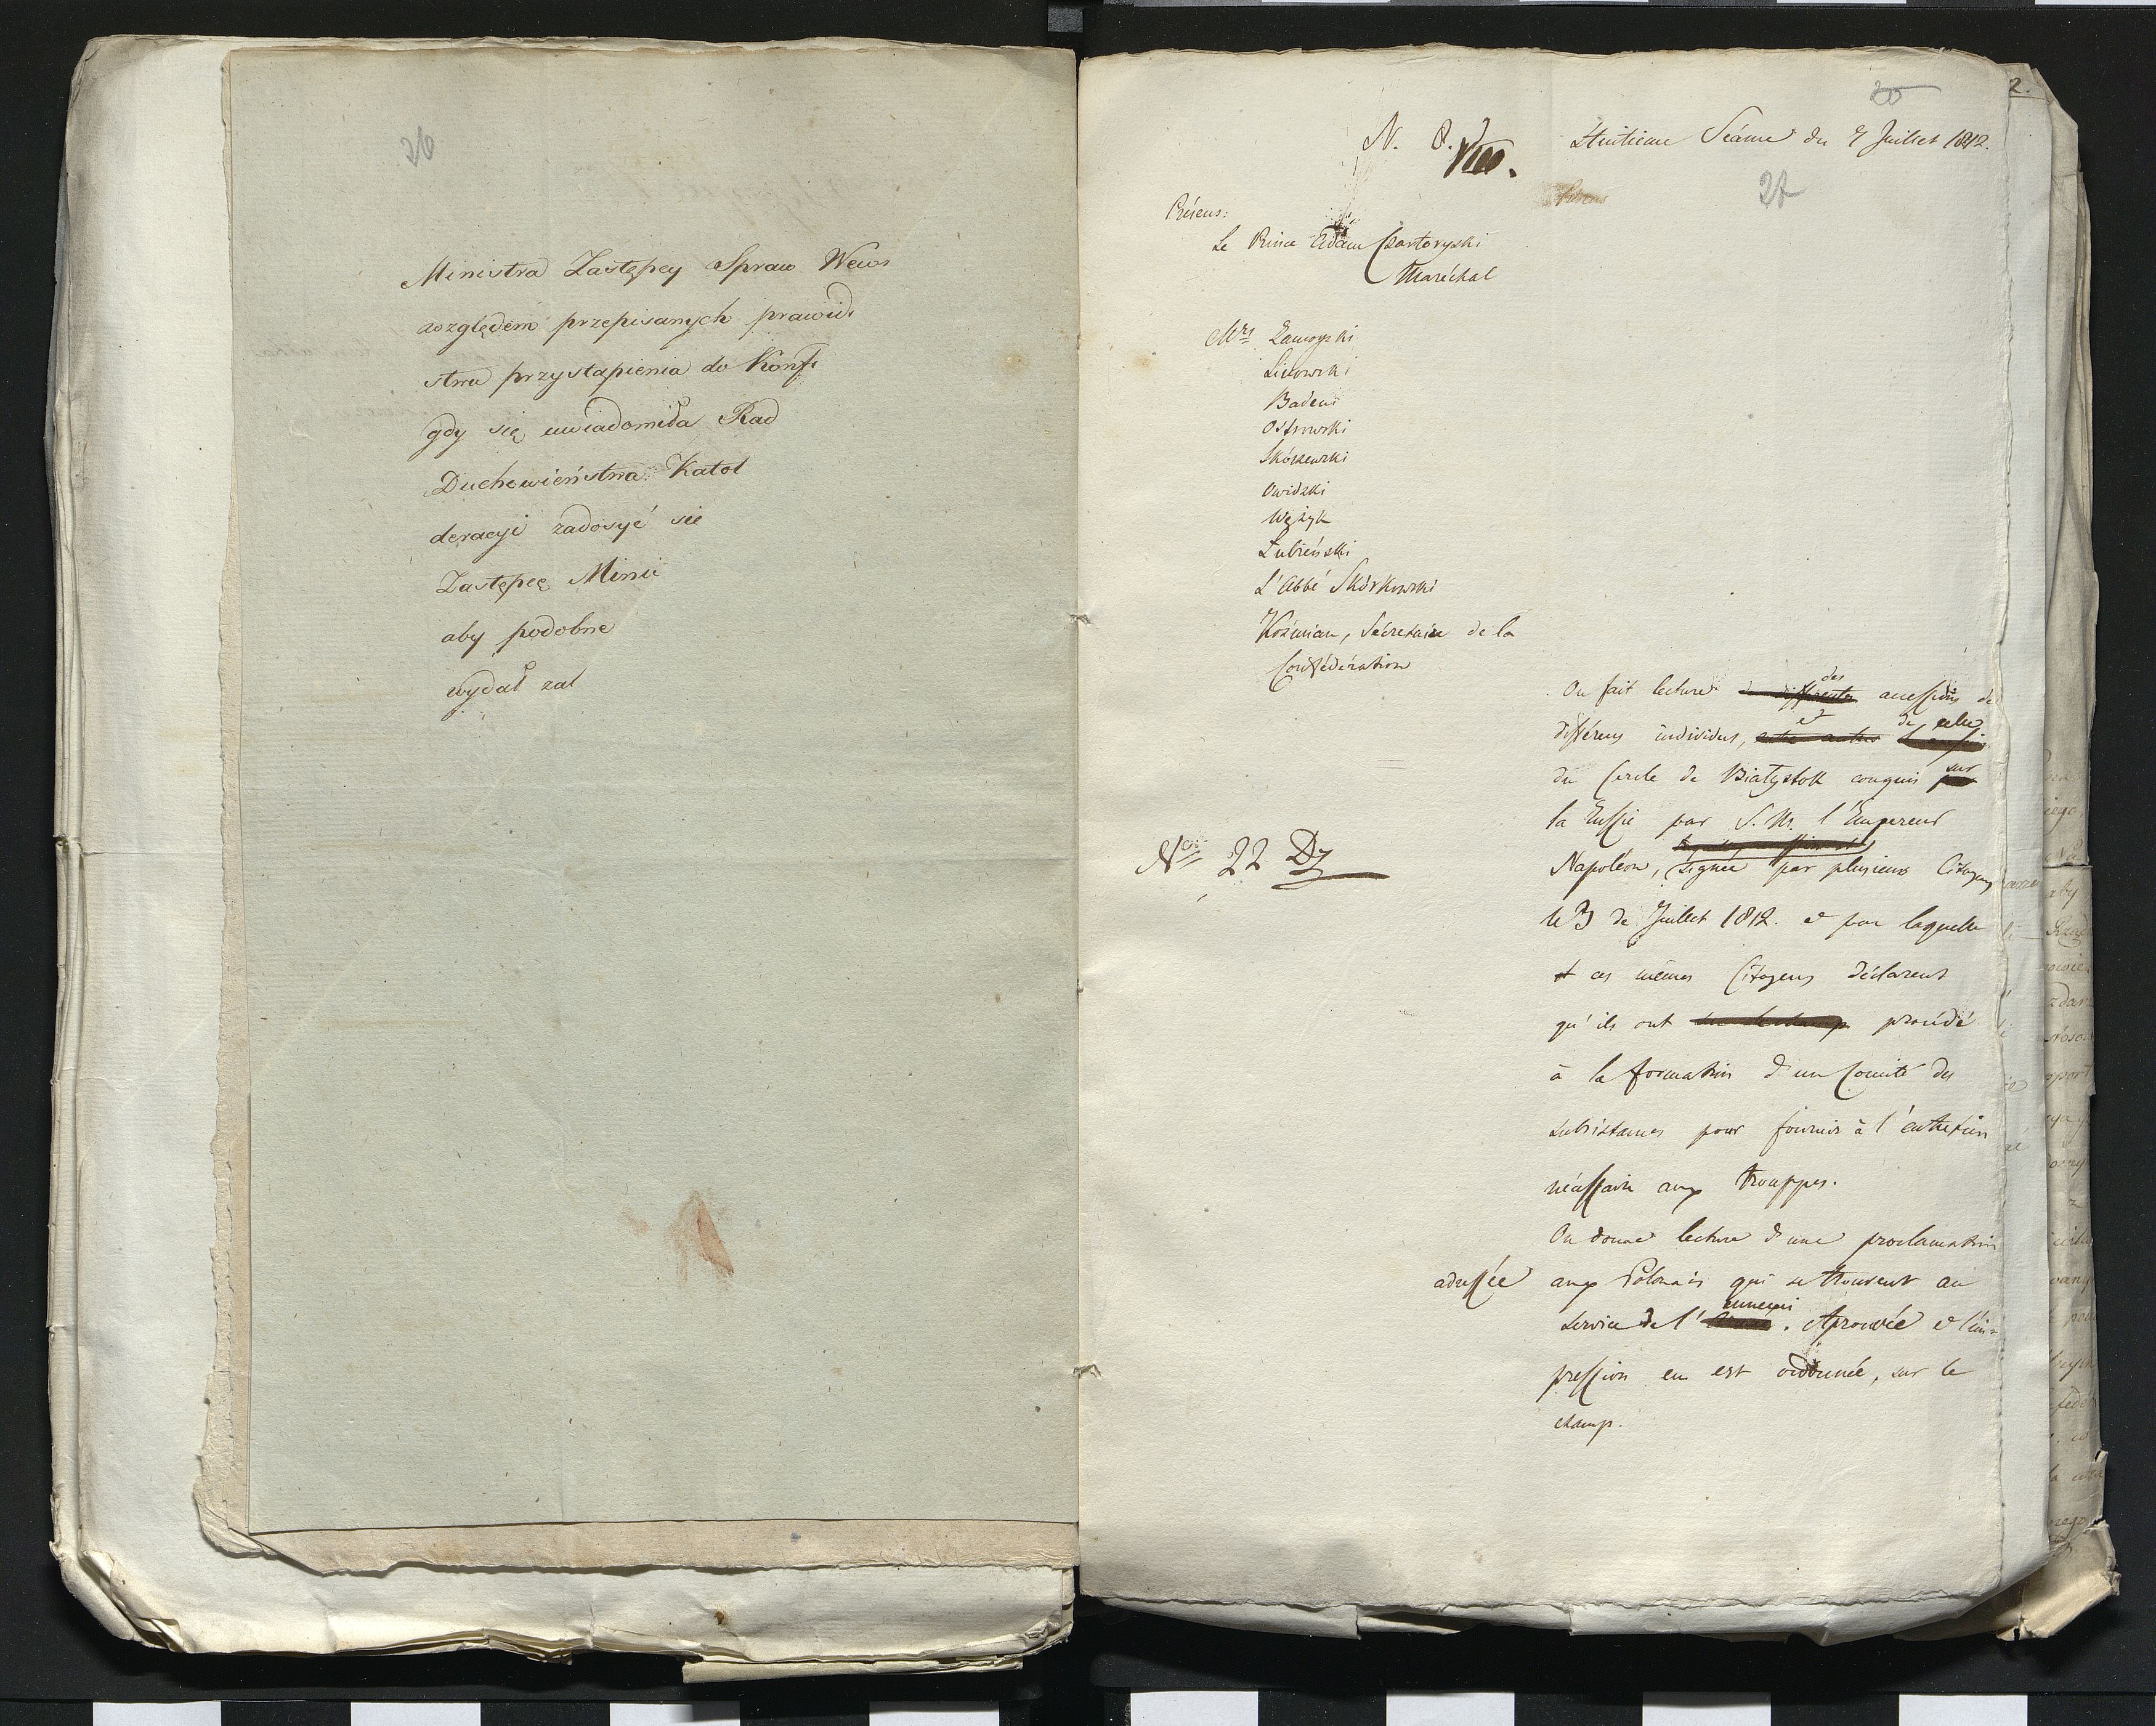 26
Ministra Zastępcy Spraw Wewn
względem przepisanych prawid
stwa przystąpienia do Konf
gdy się uwiadomiła Rad
Duchowieństwa Katol
deracyi zadosyć sie
Zastępcę Mini
aby podobne
wydał zal
20
N. 8. VIII. Huitieme Séance du 7 Juillet 1812.
27
Présens:
Le Prince Adam Czartoryski
Maréchal
Mrs Zamoyski
Linowski
Badeni
Ostrowski
Skórzewski
Owidzki
Wężyk
Łubieński
L'Abbé Skórkowski
Koźmian, Sécretaire de la
Confédération
On fait lecture des accessions de
différens individus, et de celle
du Cercle de Białystok conquis sur
la Russie par S. M. l'Empereur
No 22 Dz
Napoléon, signée par plusieurs Citoyens
le 3 de Juillet 1812. et par laquelle
ces mêmes Citoyens déclarent
qu'ils ont procédé
à la formation d'un Comité des
subsistances pour fournir à l'entretien
nécessaire aux trouppes.
On donne lecture d'une proclamation
adressée aux Polonais qui se trouvent au
service de l'ennemi. Aprouvée et l'im-
pression en est ordonnée, sur le
champ.